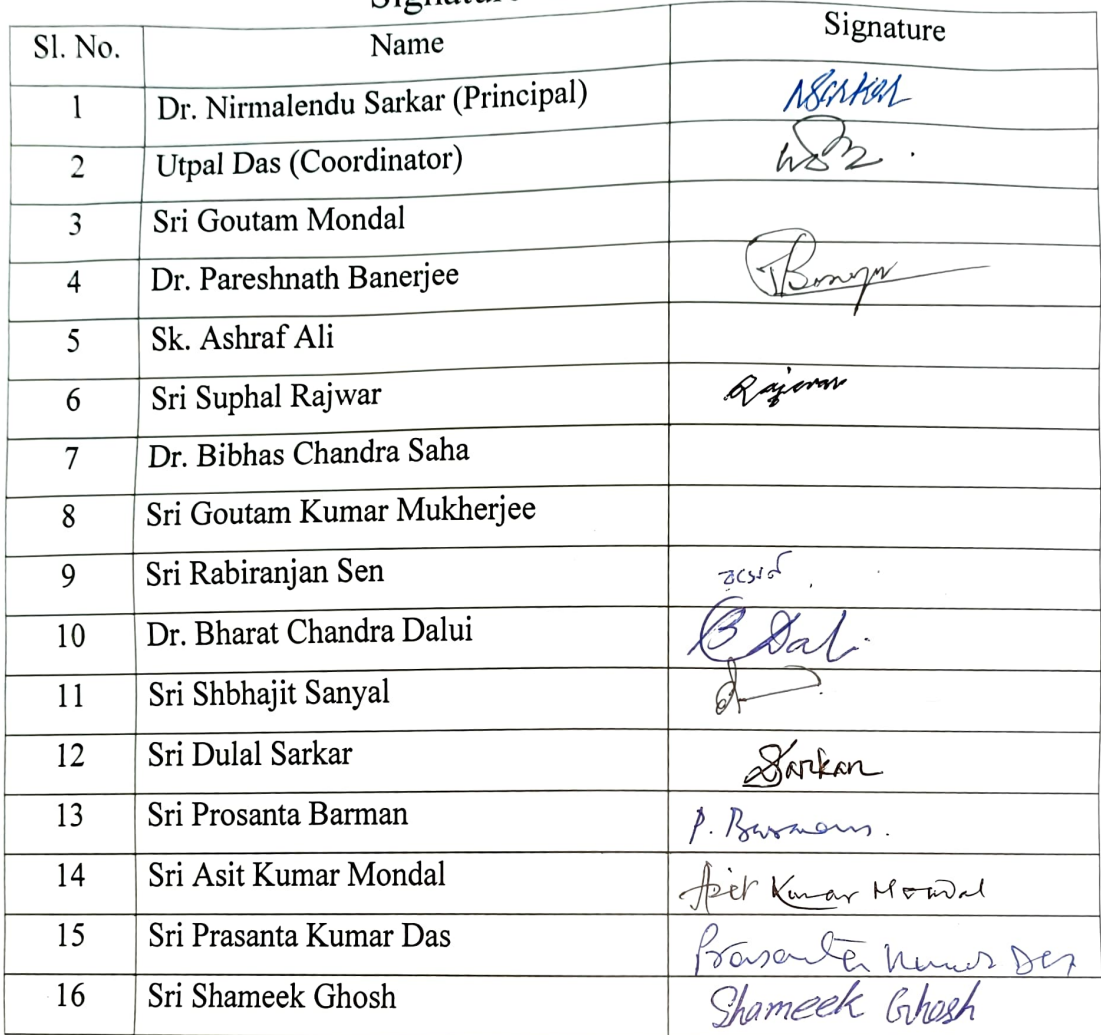 Sl. No. Name Signature
1 Dr. Nirmalendu Sarkar (Principal) NSarkar
2 Utpal Das (Coordinator)
3 Sri Goutam Mondal
4 Dr. Pareshnath Banerjee
5 Sk. Ashraf Ali
6 Sri Suphal Rajwar Rajwar
7 Dr. Bibhas Chandra Saha
8 Sri Goutam Kumar Mukherjee
9 Sri Rabiranjan Sen
10 Dr. Bharat Chandra Dalui
11 Sri Shbhajit Sanyal
12 Sri Dulal Sarkar DSarkar
13 Sri Prosanta Barman P. Barman.
14 Sri Asit Kumar Mondal Asit Kumar Mondal
15 Sri Prasanta Kumar Das Prasanta Kumar Das
16 Sri Shameek Ghosh Shameek Ghosh